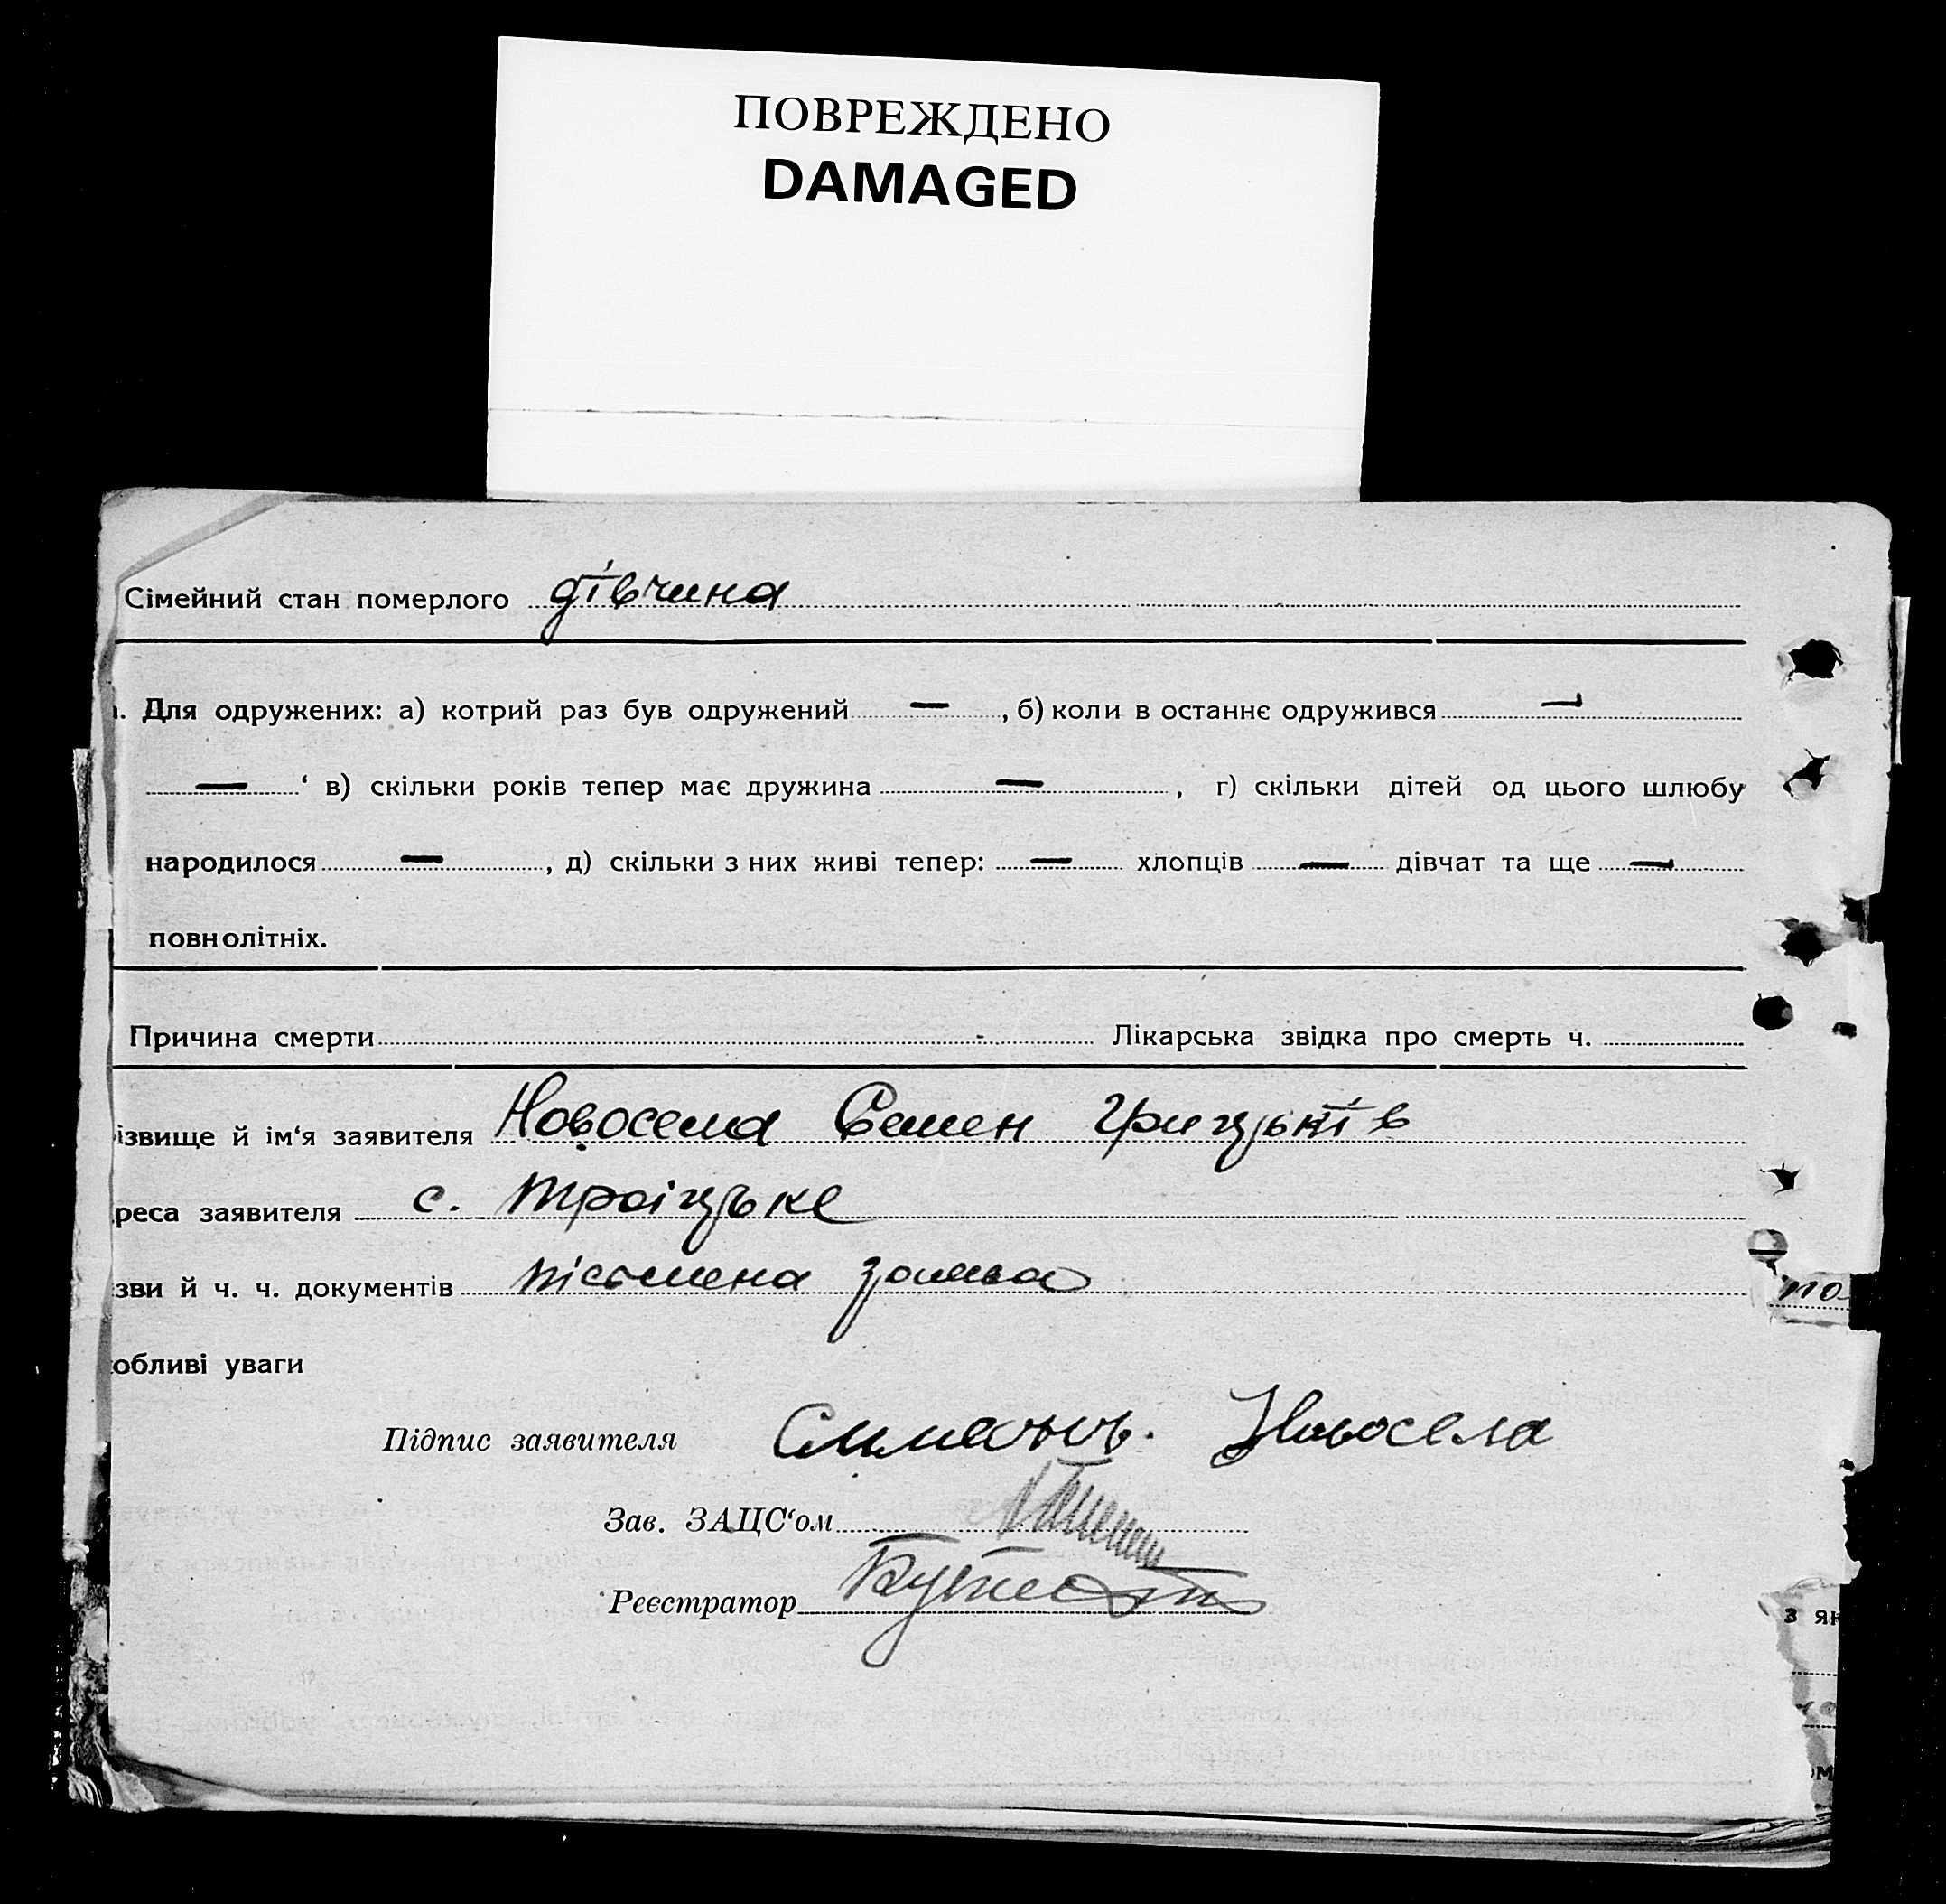 ПОВРЕЖДЕНО
DAMAGED
Сімейний стан померлого дівчина
. Для одружених: а) котрий раз був одружений —, б) коли в останнє одружився —
— ‘ в) скільки років тепер має дружина —, г) скільки дітей од цього шлюбу
народилося —, д) скільки з них живі тепер: — хлопців — дівчат та ще —
повнолітніх.
Причина смерти Лікарська звідка про смерть ч.
ізвище й ім‘я заявителя Новосела Семен
реса заявителя с. Троіцьке
зви й ч. ч. документів пісьмена заява
по
обливі уваги
Підпис заявителя Новосела
Зав. ЗАЦС‘ом
Реєстратор
з як